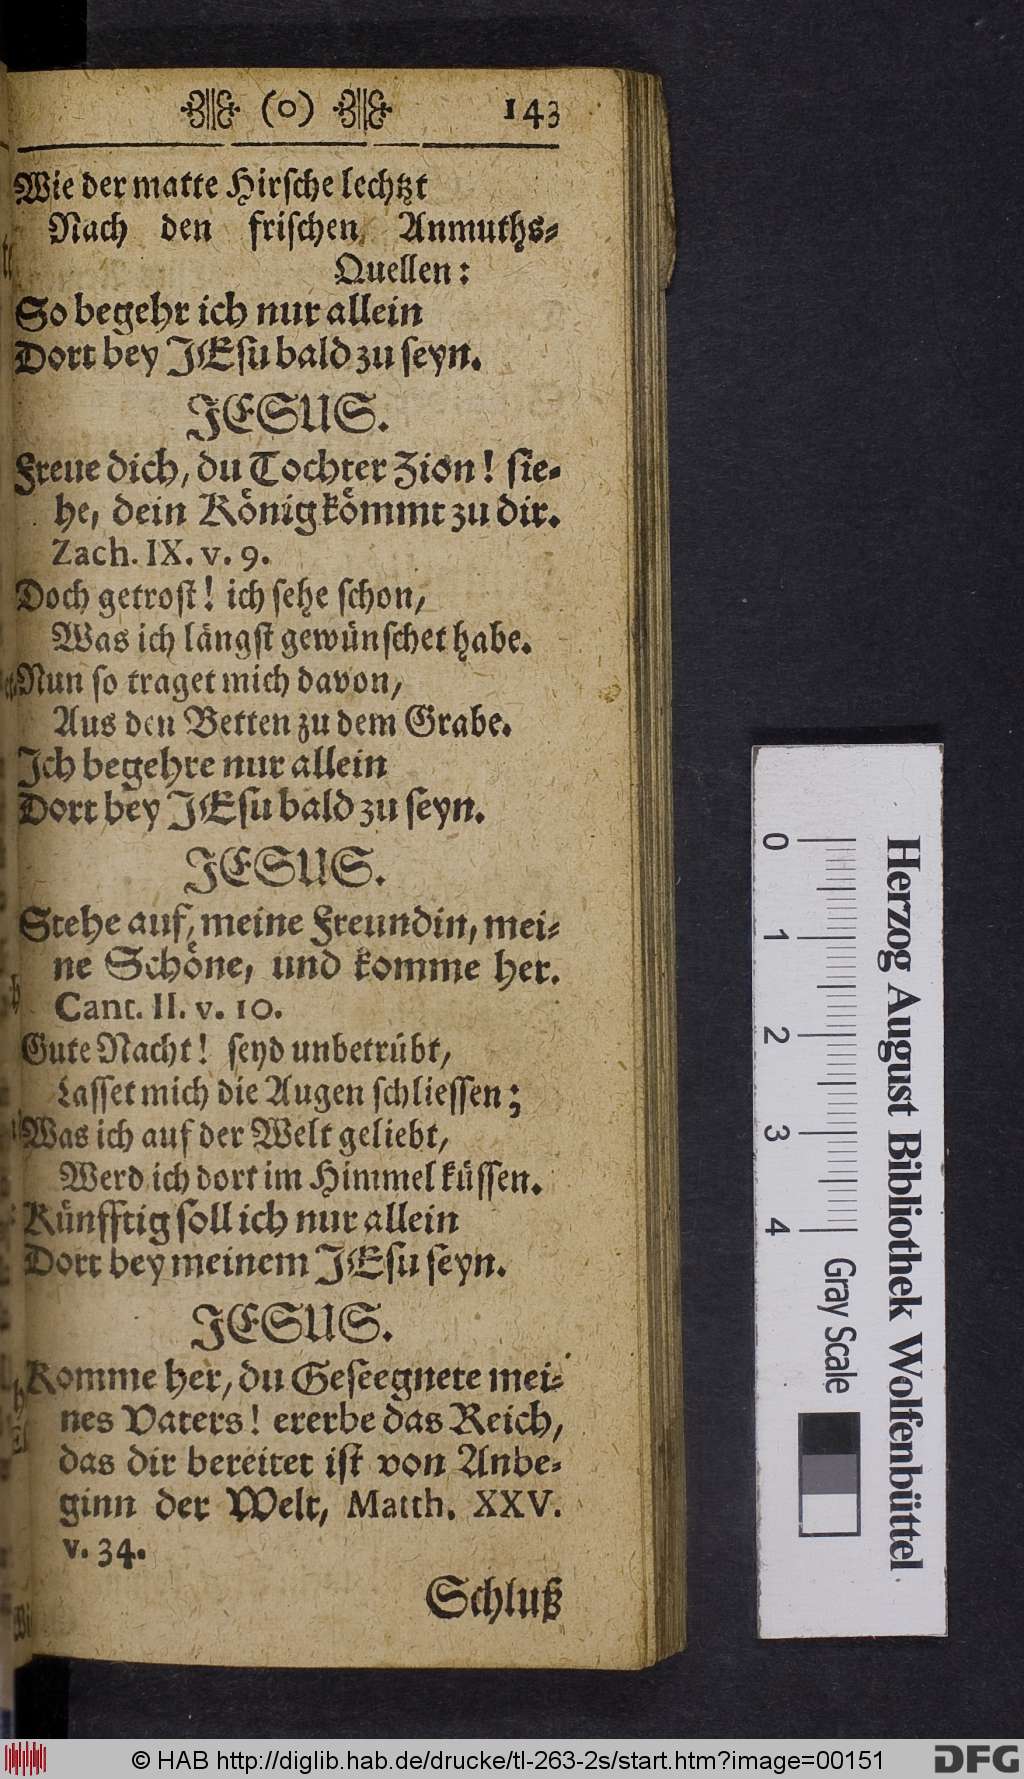 (o) 143
Wie der matte Hirsche lechtzt
Nach den frischen Anmuths-
Quellen:
So begehr ich nur allein
Dort bey JEsu bald zu seyn.
JESUS.
Freue dich, du Tochter Zion! sie-
he, dein König kömmt zu dir.
Zach. IX. v. 9.
Doch getrost! ich sehe schon,
Was ich längst gewünschet habe.
Nun so traget mich davon,
Aus den Betten zu dem Grabe.
Ich begehre nur allein
Dort bey JEsu bald zu seyn.
JESUS.
Stehe auf, meine Freundin, mei-
ne Schöne, und komme her.
Cant. II. v. 10.
Gute Nacht! seyd unbetrübt,
Lasset mich die Augen schliessen;
Was ich auf der Welt geliebt,
Werd ich dort im Himmel küssen.
Künfftig soll ich nur allein
Dort bey meinem JEsu seyn.
JESUS.
Komme her, du Geseegnete mei-
nes Vaters! ererbe das Reich,
das dir bereitet ist von Anbe-
ginn der Welt, Matth. XXV.
v. 34.
Schluß
0 1 2 3 4
Gray Scale
Herzog August Bibliothek Wolfenbüttel
© HAB http://diglib.hab.de/drucke/tl-263-2s/start.htm?image=00151
DFG